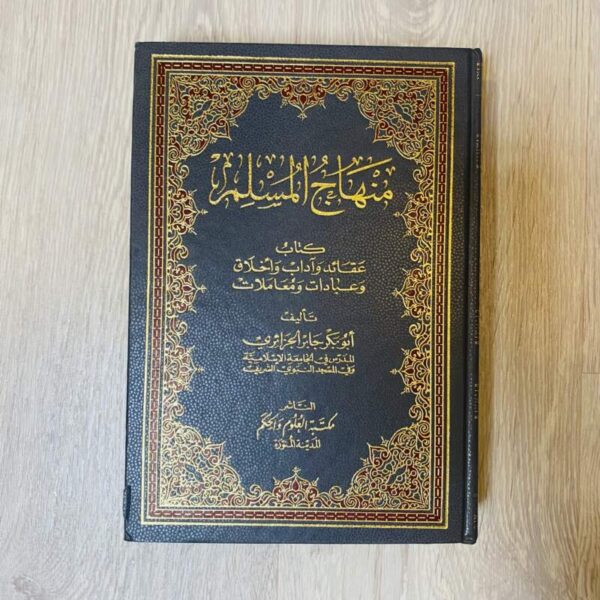 منهاج المسلم
كتاب
عقائد وآداب وأخلاق
وعبادات ومعاملات
تأليف
أبو بكر جابر الجزائري
المدرس في الجامعة الإسلامية
وفي المسجد النبوي الشريف
الناشر
مكتبة العلوم والحكم
المدينة المنورة